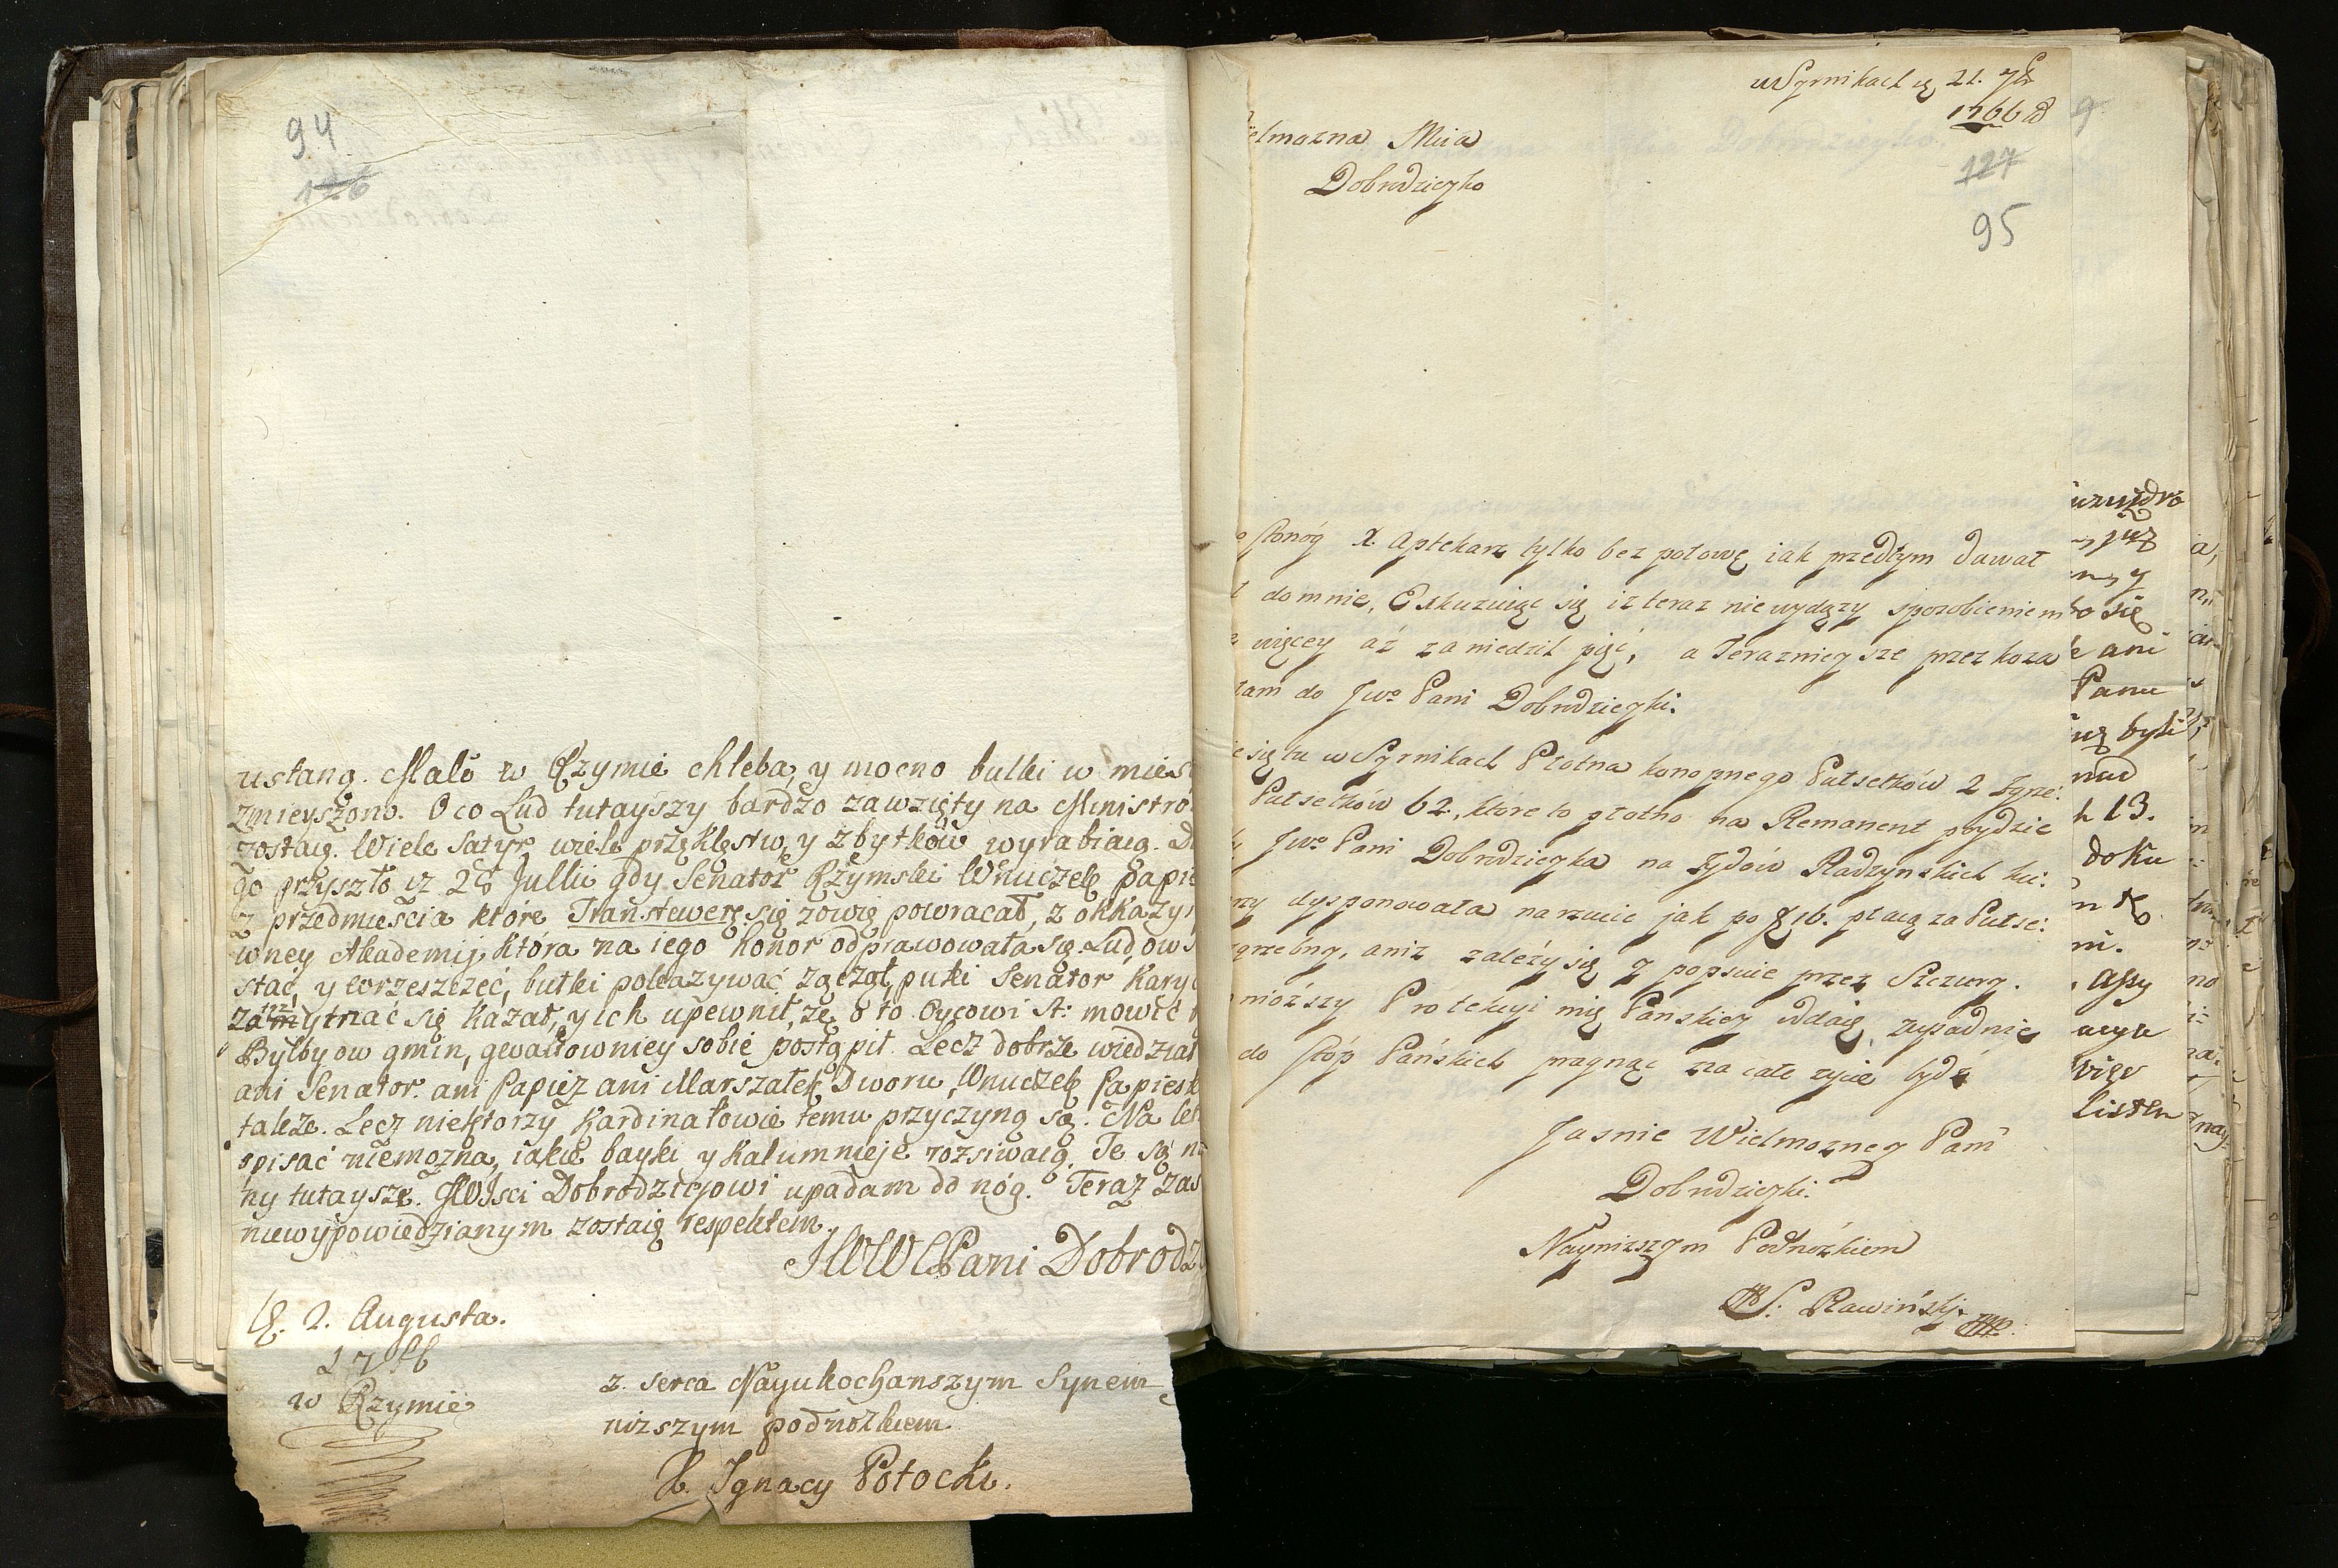 94
126
ustaną. Mało w Rzymie chleba, y mocno bułki w mies
zmieyszono. O co Lud tutayszy bardzo zawzięty na Ministró
zostaią. Wiele Satyr wiele przęklęstw, y zbytków wyrabiaią. D
go przyszło iż 28 Jullii gdy Senator Rzymski Wnuczek papie
z przedmieścia które Transtewerę się zowią powracał, z okkazyi
wney Akademij, która na iego honor odprawowała się. Lud, ow
stać, y wrzeszczeć, bułki pokazywać zączął, puki Senator Kary
zatrzymać się kazał, y ich upewnił, że o to Oycowi St: mowić
Byłby ow gmin, gewałtowniey sobie postąpił. Lecz dobrze wiedział
ani Senator. ani Papież ani Marszałek Dworu, Wnuczek Papiesk
także. Lecz niektorzy Kardinałowie temu przyczyną są. Na
opisać niemożna, iakie bayki y kalumnieje rozsiwaią. Te są
ny tutaysze. JWJsci Dobrodziejowi upadam do nóg. Teraz zas
niewypowiedzianym zostaię respektem.
JWWPani Dobrodz
2. Augusta.
1766
w Rzymie
z serca Nayukochanszym Synem
niższym podnóżkiem
X. Ignacy Potocki.
w Syrnikach 21. 7br
1766 R
127
95
elmożna Mcia
Dobrodzieyko
Stonóg X. Aptekarz tylko bez połowę iak przedtym dawał
do mnie, Exkuzuiąc się iż teraz nie wydąży sposobieniem
więcey aż za niedzil pięć, a Teraznieysze przez koza
łam do Jwo Pani Dobrodzieyki.
się tu w Syrnikach Płotna konopnego Pułsetków 2 Zgrze:
Pułsetków 62., które to płotno na Remanent poydzie
Jwo Pani Dobrodzieyka na Zydów Radzynskich
dysponowała narzucic jak po 16. płacą za Pułse:
zgrzebny, aniż zależy się y popsuie przez Szczury.
nióższy Protekcyi mię Panskiey oddaię, zupadnie
do stóp Pańskich pragnąc na całe życie bydź
Jasnie Wielmozney Pani
Dobrodzieyki.
Nayniższym Podnóżkiem
S: Rawiński
już
się
ani
Panu
byli
nad
13.
doku
ni.
listem